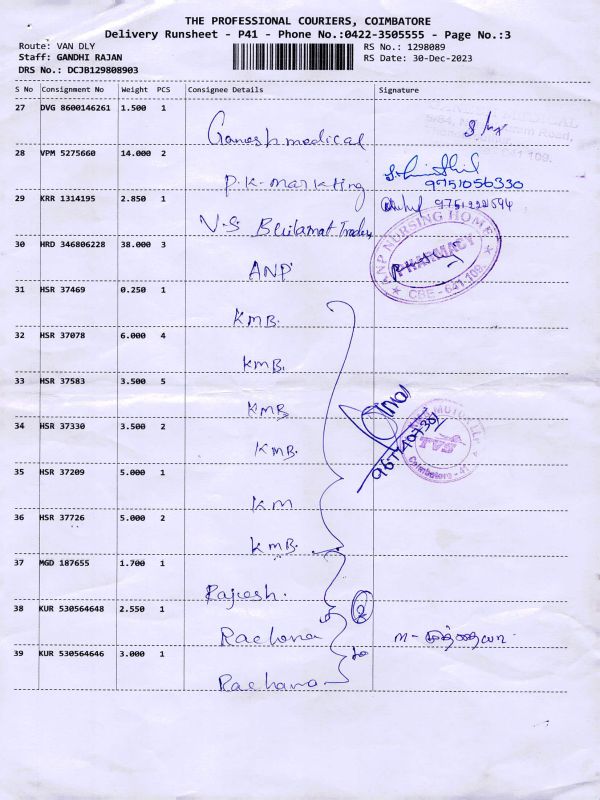 THE PROFESSIONAL COURIERS, COIMBATORE
Delivery Runsheet - P41 - Phone No.:0422-3505555 - Page No.:3
Route: VAN DLY
RS No.: 1298089
Staff: GANDHI RAJAN
RS Date: 30-Dec-2023
DRS No.: DCJB129808903
S No Consignment No Weight PCS Consignee Details Signature
27 DVG 8600146261 1.500 1
Ganesh medical
28 VPM 5275660 14.000 2
P.K. markting 9751056330
29 KRR 1314195 2.850 1
V.S Traders
30 HRD 346806228 38.000 3
ANP
ANP NURSING HOME
PHARMACY
CBE - 641 109
31 HSR 37469 0.250 1
KMB.
32 HSR 37078 6.000 4
KMB.
33 HSR 37583 3.500 5
KMB
34 HSR 37330 3.500 2
KMB.
TVS
Coimbatore - 41
35 HSR 37209 5.000 1
KM
36 HSR 37726 5.000 2
KMB.
37 MGD 187655 1.700 1
Rajesh.
38 KUR 530564648 2.550 1
2
Rachana
39 KUR 530564646 3.000 1
Rachana